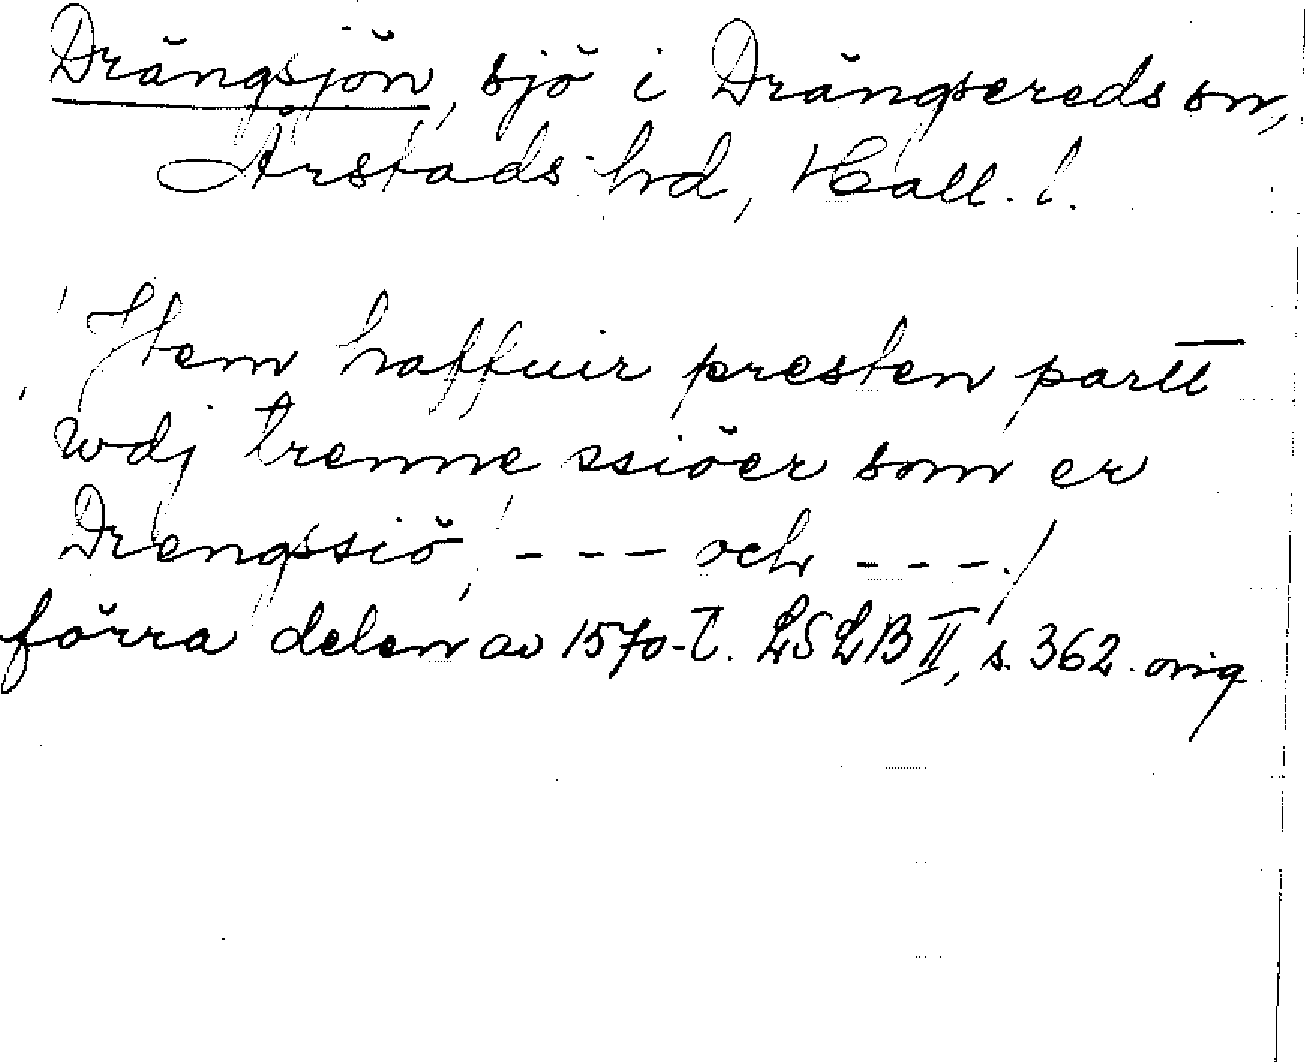 Drängsjön, sjö i Drängsereds sn,
Årstads hd, Hall. l.
/Jtem haffuir presten partt
wdj trenne ssiöer som er
Drengssiö,/ - - - och - - -./
förra delen av 1570-t. LSLB II, s. 362. orig